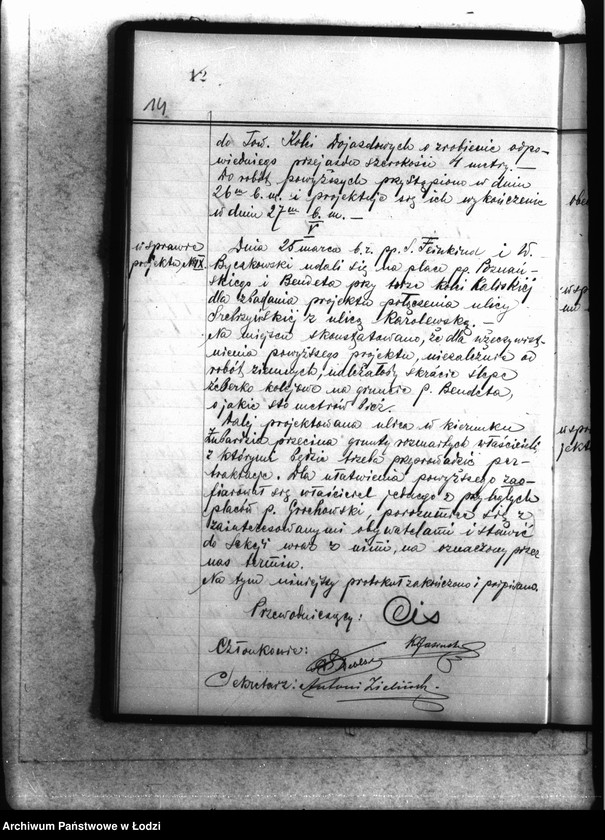 12
14
do Tow. Kolei Dojazdowych o zrobienie odpo-
wiedniego przejazdu szerokości 4 metry. —
Do robót powyższych przystąpiono w dniu
26 b.m. i projektuje się ich wykończenie
w dniu 27 b.m. —
V
w sprawie
projektu № IX.
Dnia 25 marca b.r. pp. S. Feinkind i W.
Byczkowski udali się na place pp. Poznań-
skiego i Bendeta przy torze kolei Kaliskiej
dla zbadania projektu połączenia ulicy
Srebrzyńskiej z ulicą Karolewską. —
Na miejscu skonstatowano, że dla urzeczywist-
nienia powyższego projektu, niezależnie od
robót ziemnych, należałoby skrócić ślepe
żeberko kolejowe na gruncie p. Bendeta,
o jakie sto metrów bież.
Dalej projektowana ulica w kierunku
Żubardzia przecina grunty rozmaitych właścicieli,
z którymi będzie trzeba przeprowadzić per-
traktacje. Dla ułatwienia powyższego zao-
fiarował się właściciel jednego z przyległych
placów p. Grochowski, porozumieć się z
zainteresowanymi obywatelami i stawić
do Sekcji wraz z nimi, na oznaczony przez
nas termin.
Na tym niniejszy protokuł zakończono i podpisano.
Przewodniczący:
Członkowie:
Sekretarz: Antoni Zieliński.
Archiwum Państwowe w Łodzi